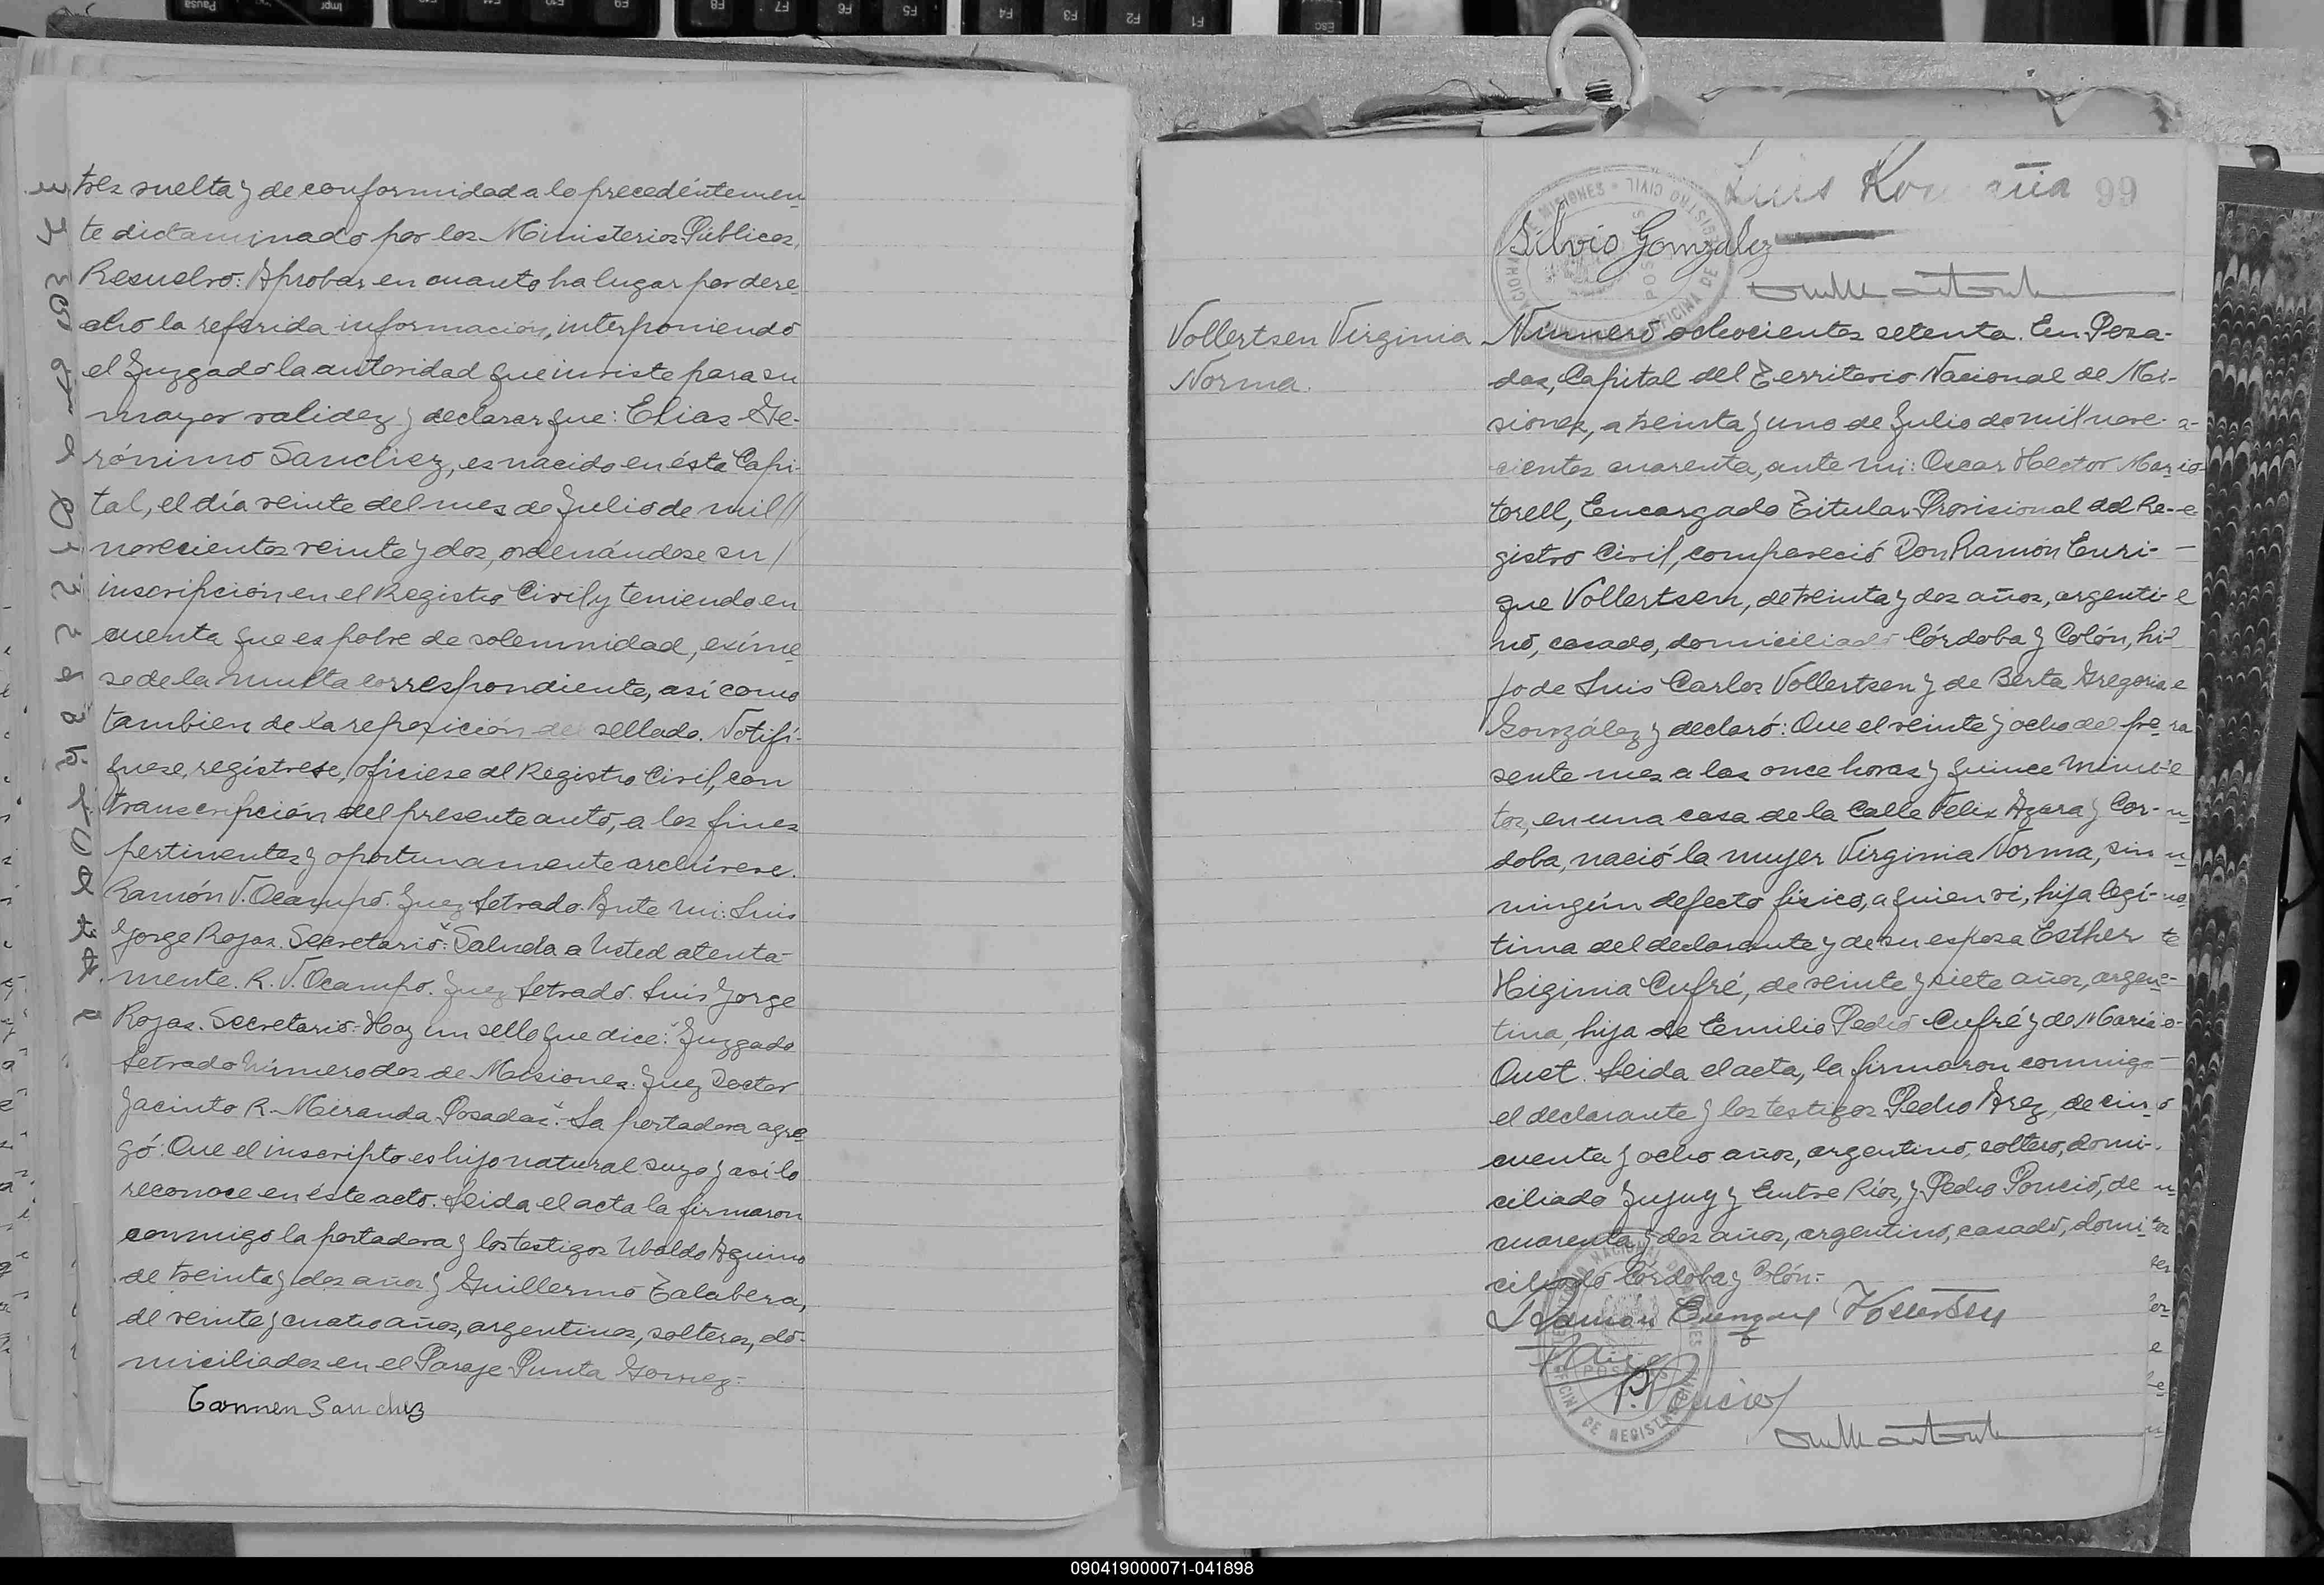 tres vuelta y de conformidad a lo precedentemen
te dictaminado por los Ministerios Públicos,
Resuelvo: Aprobar en cuanto ha lugar por dere
cho la referida información, interponiendo
el Juzgado la autoridad que inviste para su
mayor validez y declarar que: Elias Ge-
rónimo Sanchez, es nacido en ésta Capi
tal, el día veinte del mes de Julio de mil //
novecientos veinte y dos, ordenándose su /
inscripción en el Registro Civil y teniendo en
cuenta que es pobre de solemnidad, exíme
se de la multa correspondiente, así como
tambien de la reposición del sellado. Notifí-
quese, regístrese, ofíciese al Registro Civil, con
transcripción del presente auto, a los fines
pertinentes y oportunamente archívese.
Ramón V. Ocampo. Juez Letrado. Ante mi: Luis
Jorge Rojas. Secretario": Saluda a Usted atenta-
mente. R. V. Ocampo. Juez Letrado. Luis Jorge
Rojas. Secretario: Hay un sello que dice: "Juzgado
Letrado Número dos de Misiones. Juez Doctor
Jacinto R. Miranda Posadas". La portadora agre
gó: Que el inscripto es hijo natural suyo y así lo
reconoce en éste acto. Leida el acta la firmaron
conmigo la portadora y los testigos Ubaldo Aquino
de treinta y dos años y Guillermo Talabera,
de veinte y cuatro años, argentinos, solteros, do-
miciliados en el Paraje Punta Gomez:
Carmen Sanchez
Luis 99
Silvio Gonzalez
Vollertsen Virginia
Norma.
Número ochocientos setenta. En Posa-
das, Capital del Territorio Nacional de Mi-
siones, a treinta y uno de Julio de mil nove-
cientos cuarenta, ante mi: Oscar Hector Mar
torell, Encargado Titular Provisional del Re-
gistro Civil, compareció Don Ramón Enri-
que Vollertsen, de treinta y dos años, argenti-
no, casado, domiciliado Córdoba y Colón, hi-
jo de Luis Carlos Vollertsen y de Berta Gregoria
González y declaró: Que el veinte y ocho del pre
sente mes a las once horas y quince minu-
tos, en una casa de la Calle Felix Azara y Cor-
doba, nació la mujer Virginia Norma, sin
ningún defecto físico, a quien vi, hija legí-
tima del declarante y de su esposa Esther
Higinia Cufré, de veinte y siete años, argen-
tina, hija de Emilio Pedro Cufré y de Maria
Ouet. Leida el acta, la firmaron conmigo
el declarante y los testigos Pedro Arez, de cin-
cuenta y ocho años, argentino, soltero, domi-
ciliado Jujuy y Entre Ríos, y Pedro Poncio, de
cuarenta y dos años, argentino, casado, domi-
ciliado Córdoba y Colón:
Ramon Enrique Vollertsen
P. Poncio
090419000071-041898